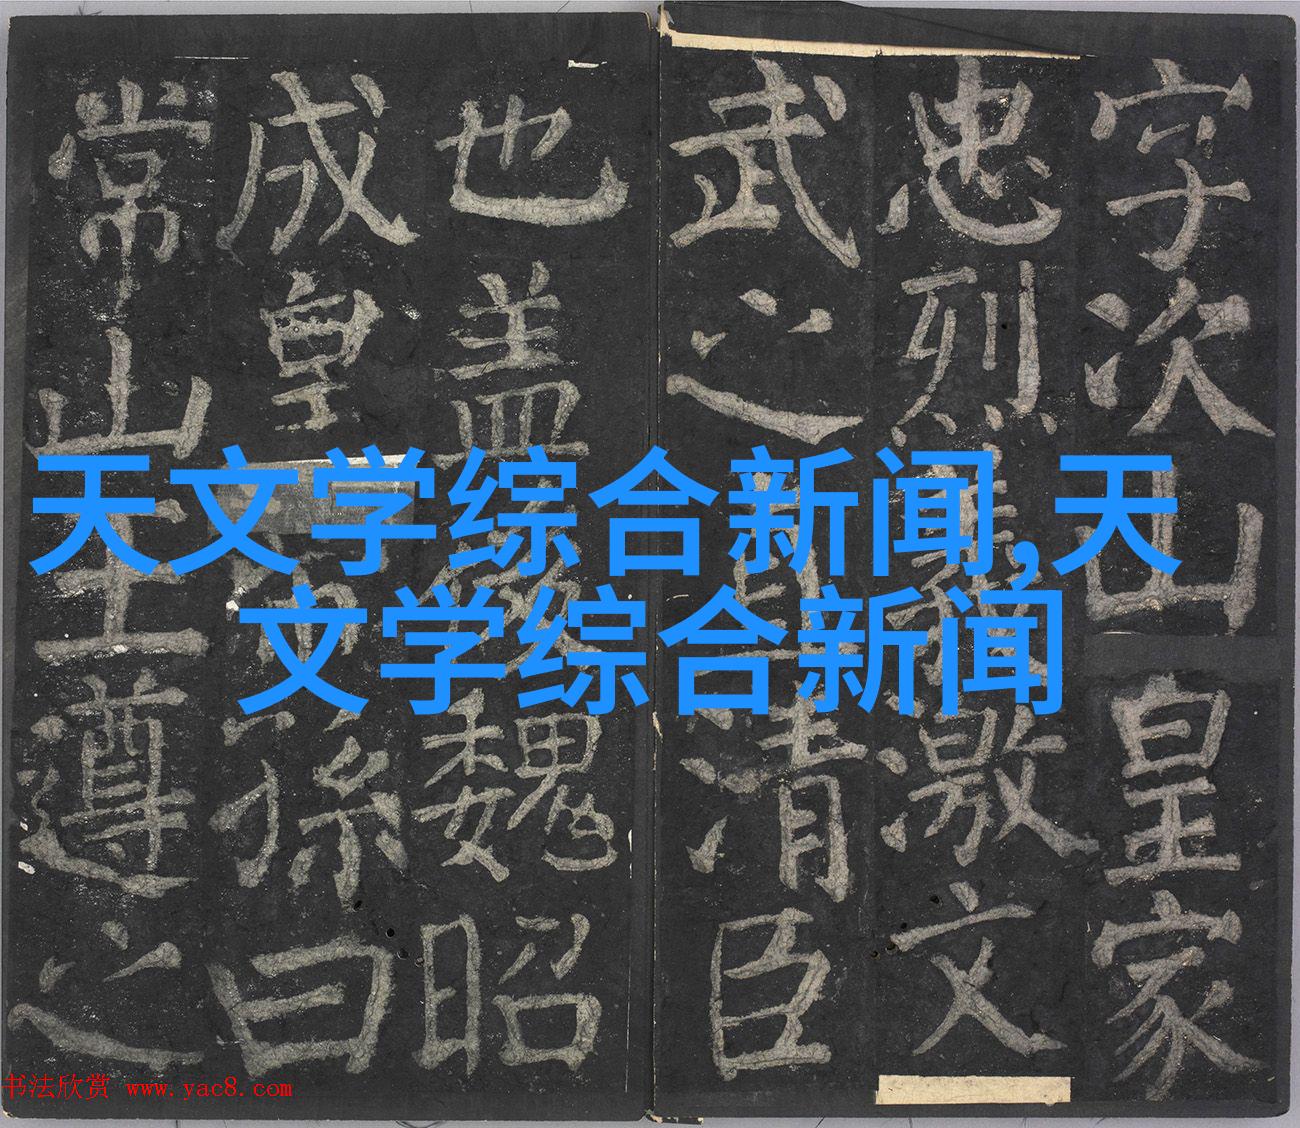 字次山皇家
忠烈義激文
武之直清臣
也盖後魏昭
成皇帝孫曰
常山王遵之
天文学综合新闻,天
文学综合新闻
书法欣赏 www.yac8.com